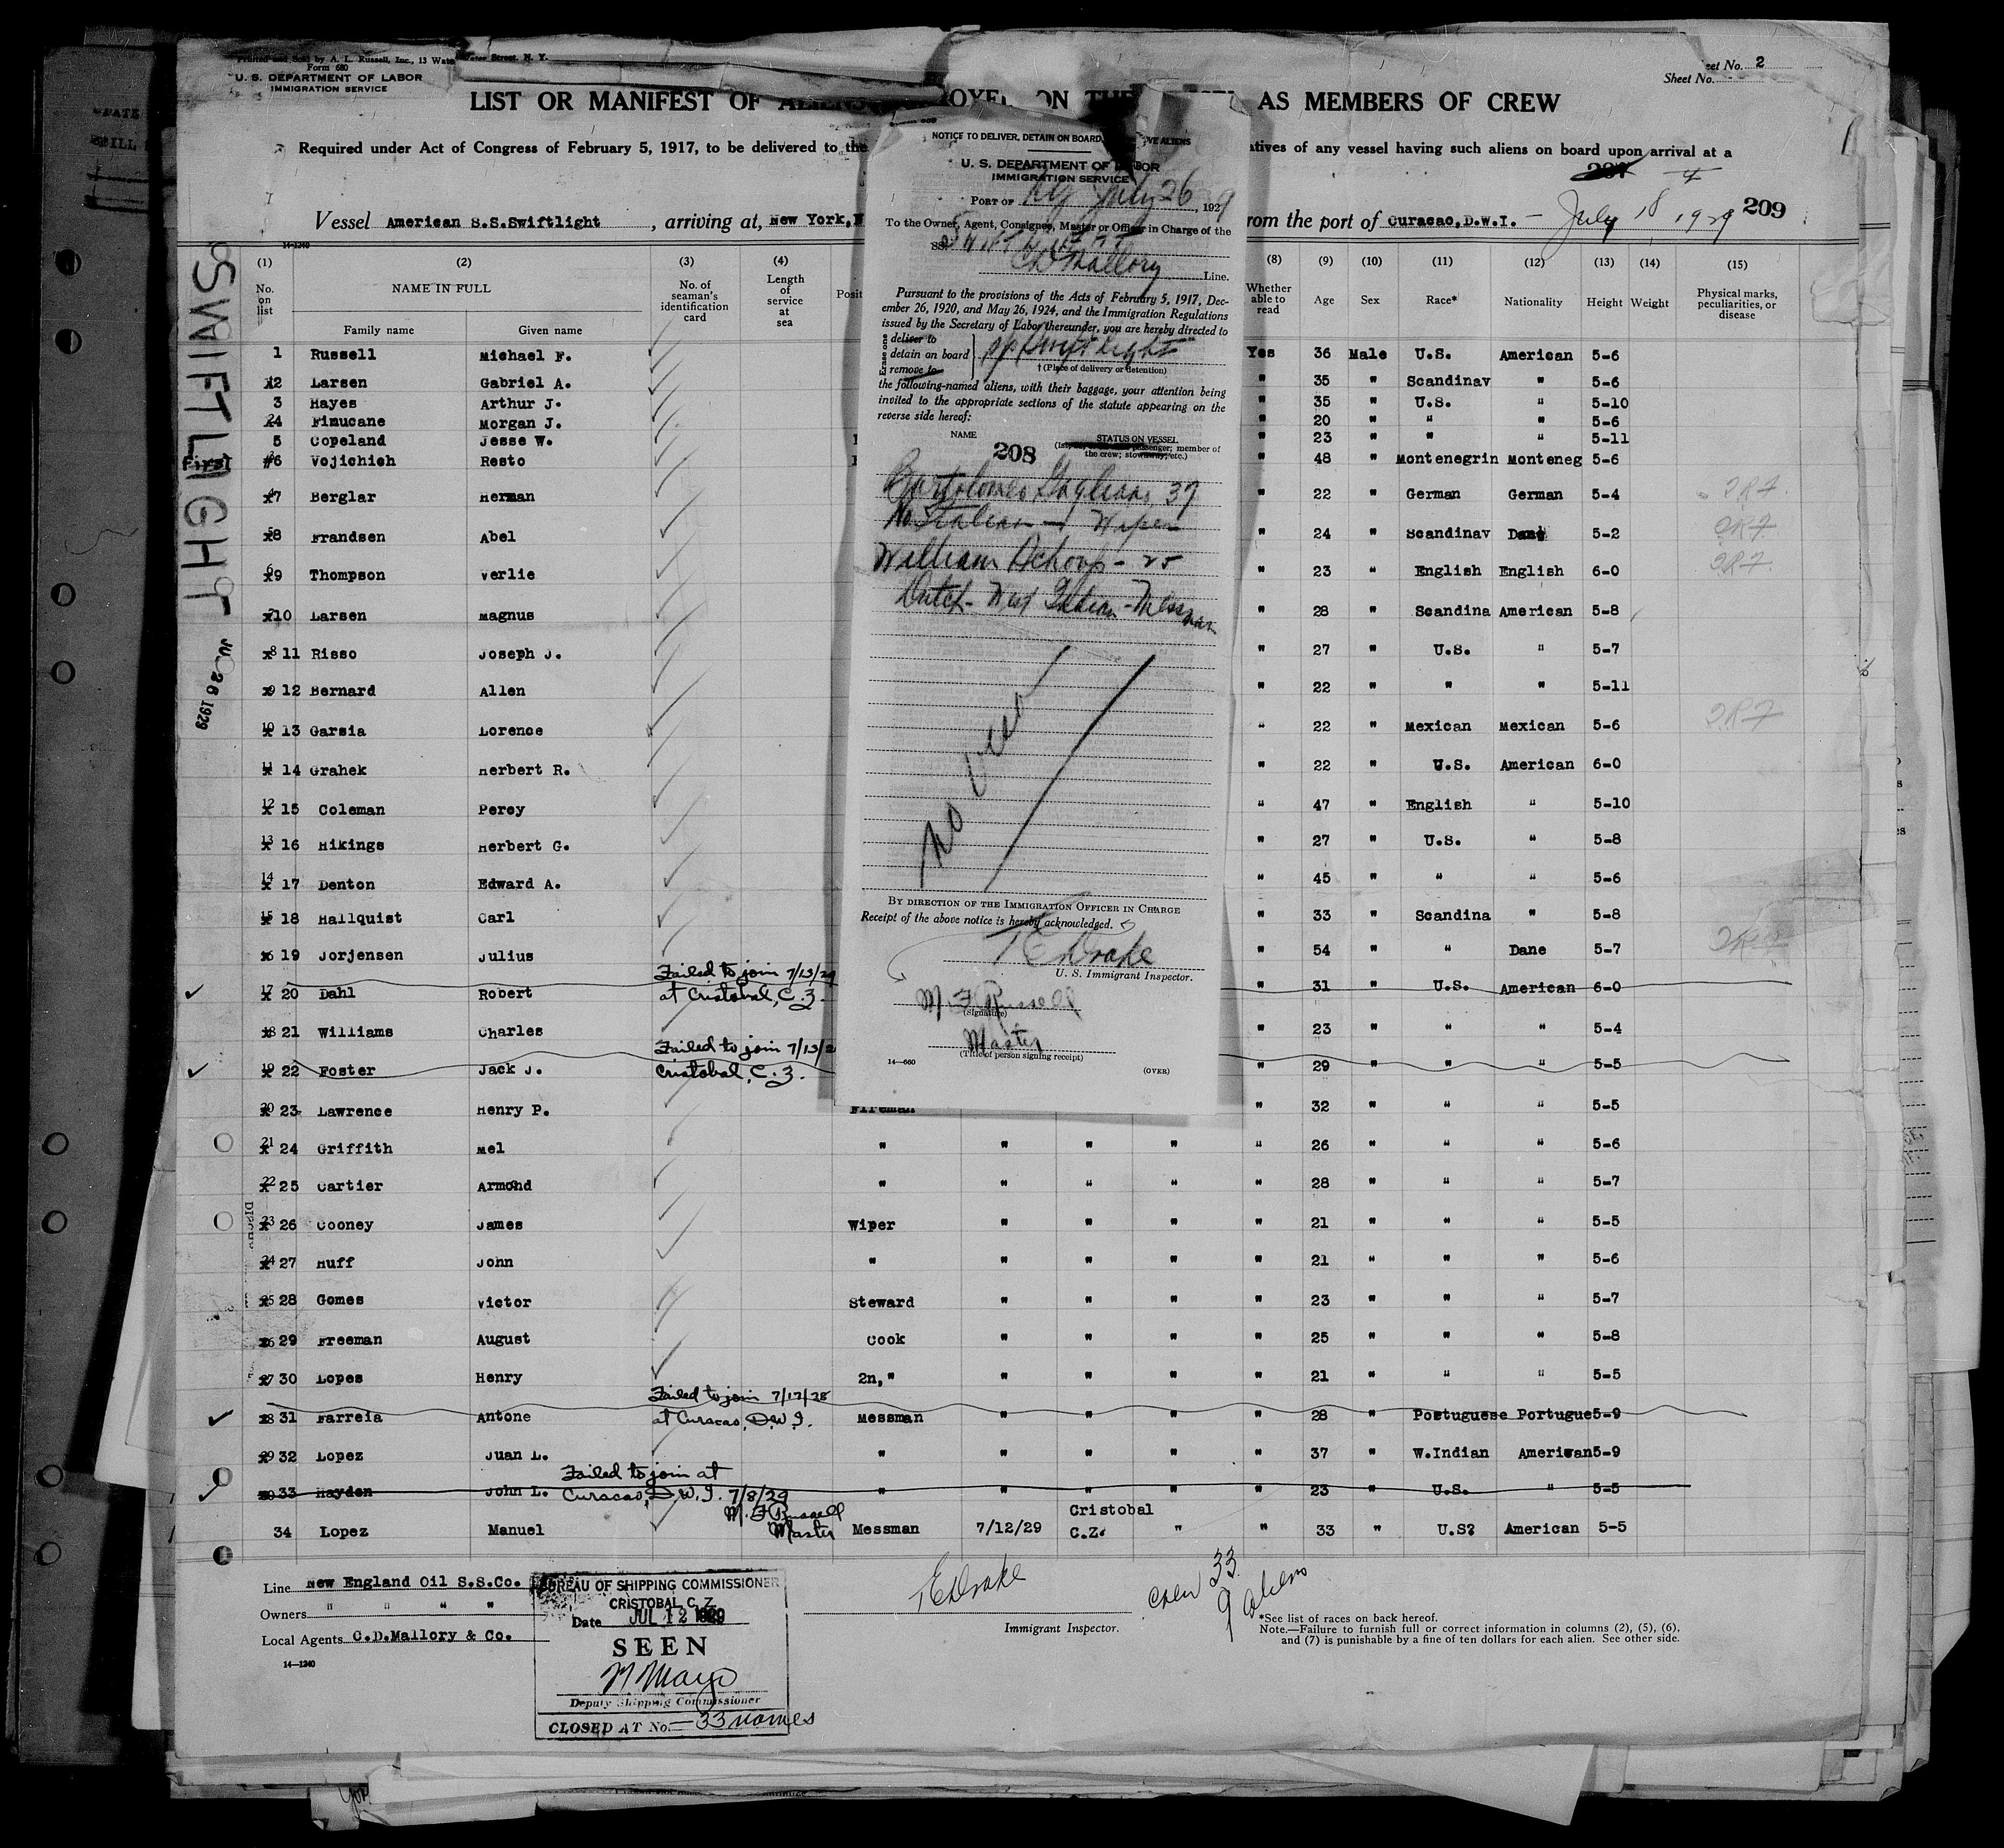 Printed and Sold by A. L. Russell, Inc., 13 Water Street, N. Y.
Form 680
U. S. DEPARTMENT OF LABOR
IMMIGRATION SERVICE
Sheet No. 2
Sheet No.
LIST OR MANIFEST OF ALIENS AS MEMBERS OF CREW
Required under Act of Congress of February 5, 1917, to be delivered to the
atives of any vessel having such aliens on board upon arrival at a
207
209
Vessel American S.S.Swiftlight, arriving at, New York, N
rom the port of Curacao, D.W.I. - July 18 1929
14-1240
SWIFTLIGHT
JUL 26 1929
First
(1) (2) (3) (4) (8) (9) (10) (11) (12) (13) (14) (15)
No. on list NAME IN FULL No. of seaman's identification card Length of service at sea Posit Whether able to read Age Sex Race* Nationality Height Weight Physical marks, peculiarities, or disease
Family name Given name
1 Russell Michael F. Yes 36 Male U.S. American 5-6
2 Larsen Gabriel A. " 35 " Scandinav " 5-6
3 Hayes Arthur J. " 35 " U.S. " 5-10
4 Finucane Morgan J. " 20 " " " 5-6
5 Copeland Jesse W. " 23 " " " 5-11
6 Vojichich Resto " 48 " Montenegrin Monteneg 5-6
7 Berglar Herman " 22 " German German 5-4
8 Frandsen Abel " 24 " Scandinav Dane 5-2
9 Thompson Verlie " 23 " English English 6-0
10 Larsen Magnus " 28 " Scandina American 5-8
11 Risso Joseph J. " 27 " U.S. " 5-7
12 Bernard Allen " 22 " " " 5-11
13 Garsia Lorence " 22 " Mexican Mexican 5-6
14 Grahek Herbert R. " 22 " U.S. American 6-0
15 Coleman Percy " 47 " English " 5-10
16 Hikings Herbert G. " 27 " U.S. " 5-8
17 Denton Edward A. " 45 " " " 5-6
18 Hallquist Carl " 33 " Scandina " 5-8
19 Jorjensen Julius " 54 " " Dane 5-7
Failed to join 7/13/29
20 Dahl Robert at Cristobal, C.Z. " 31 " U.S. American 6-0
21 Williams Charles " 23 " " " 5-4
Failed to join 7/13/2
22 Foster Jack J. Cristobal, C.Z. " 29 " " " 5-5
23 Lawrence Henry P. Fireman " 32 " " " 5-5
24 Griffith Mel " " " " " 26 " " " 5-6
25 Cartier Armond " " " " " 28 " " " 5-7
26 Cooney James Wiper " " " " 21 " " " 5-5
27 Huff John " " " " " 21 " " " 5-6
28 Gomes Victor Steward " " " " 23 " " " 5-7
29 Freeman August Cook " " " " 25 " " " 5-8
30 Lopes Henry 2n, " " " " " 21 " " " 5-5
Failed to join 7/17/28
31 Farreia Antone at Curacao, D.W.I. Messman " " " " 28 " Portuguese Portugue 5-9
32 Lopez Juan L. " " " " " 37 " W.Indian American 5-9
Failed to join at
33 Hayden John L. Curacao, D.W.I. 7/8/29 " " " " " 23 " U.S. " 5-5
M. F. Russell
Master
34 Lopez Manuel Messman 7/12/29 Cristobal C.Z. " " 33 " U.S? American 5-5
NOTICE TO DELIVER, DETAIN ON BOARD, VE ALIENS
U. S. DEPARTMENT OF LABOR
IMMIGRATION SERVICE
PORT OF NY July 26, 1929
To the Owner, Agent, Consignee, Master or Officer in Charge of the
SS. SWIFTLIGHT
CD Mallory Line.
Pursuant to the provisions of the Acts of February 5, 1917, Dec-
ember 26, 1920, and May 26, 1924, and the Immigration Regulations
issued by the Secretary of Labor thereunder, you are hereby directed to
Erase one
deliver to
detain on board
remove to
SS Swiftlight
† (Place of delivery or detention)
the following-named aliens, with their baggage, your attention being
invited to the appropriate sections of the statute appearing on the
reverse side hereof:
NAME
STATUS ON VESSEL
passenger; member of
the crew; stowaway; etc.)
208
Bartolomeo Gagliano, 37
No Italian - Wiper
William Schoop - 25
Dutch West Indian - Messman
BY DIRECTION OF THE IMMIGRATION OFFICER IN CHARGE
Receipt of the above notice is hereby acknowledged.
T E Drake
U. S. Immigrant Inspector.
M F Russell
(Signature)
Master
(Title of person signing receipt)
14-660
(OVER)
Line New England Oil S.S.Co.
Owners " " " "
Local Agents C.D.Mallory & Co.
14-1240
BUREAU OF SHIPPING COMMISSIONER
CRISTOBAL C. Z.
Date JUL 12 1929
SEEN
M. Mayo
Deputy Shipping Commissioner
CLOSED AT No. - 33 names
TE Drake
Immigrant Inspector.
Crew 33
9 aliens
*See list of races on back hereof.
Note.—Failure to furnish full or correct information in columns (2), (5), (6),
and (7) is punishable by a fine of ten dollars for each alien. See other side.